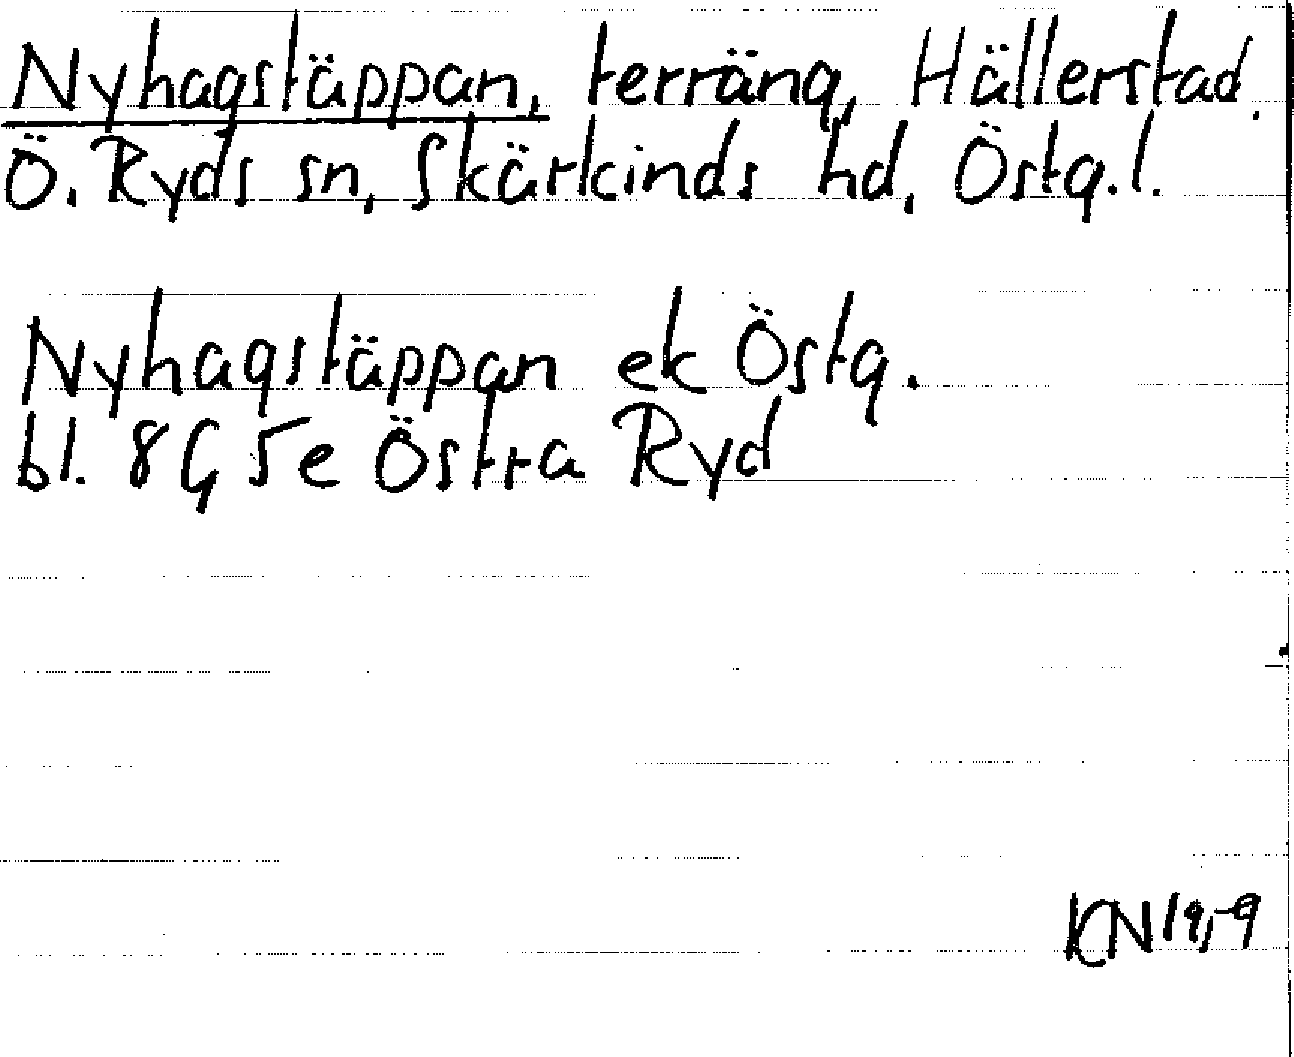 Nyhagstäppan, terräng, Hällerstad,
Ö. Ryds sn, Skärkinds hd, Östg. l.
Nyhagstäppan ek Östg.
bl. 8G 5e Östra Ryd